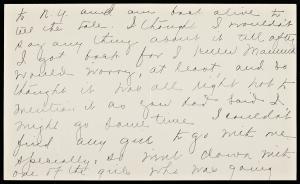 to N.Y. and am back alive to
tell the tale. I thought I wouldn't
say any thing about it till after
I got back for I knew Mamma
would worry, at least, and so
thought it was all right not to
mention it as you had said I
might go some time. I couldn't
find any girl to go with me
specially, so went down with
one of the girls who was going